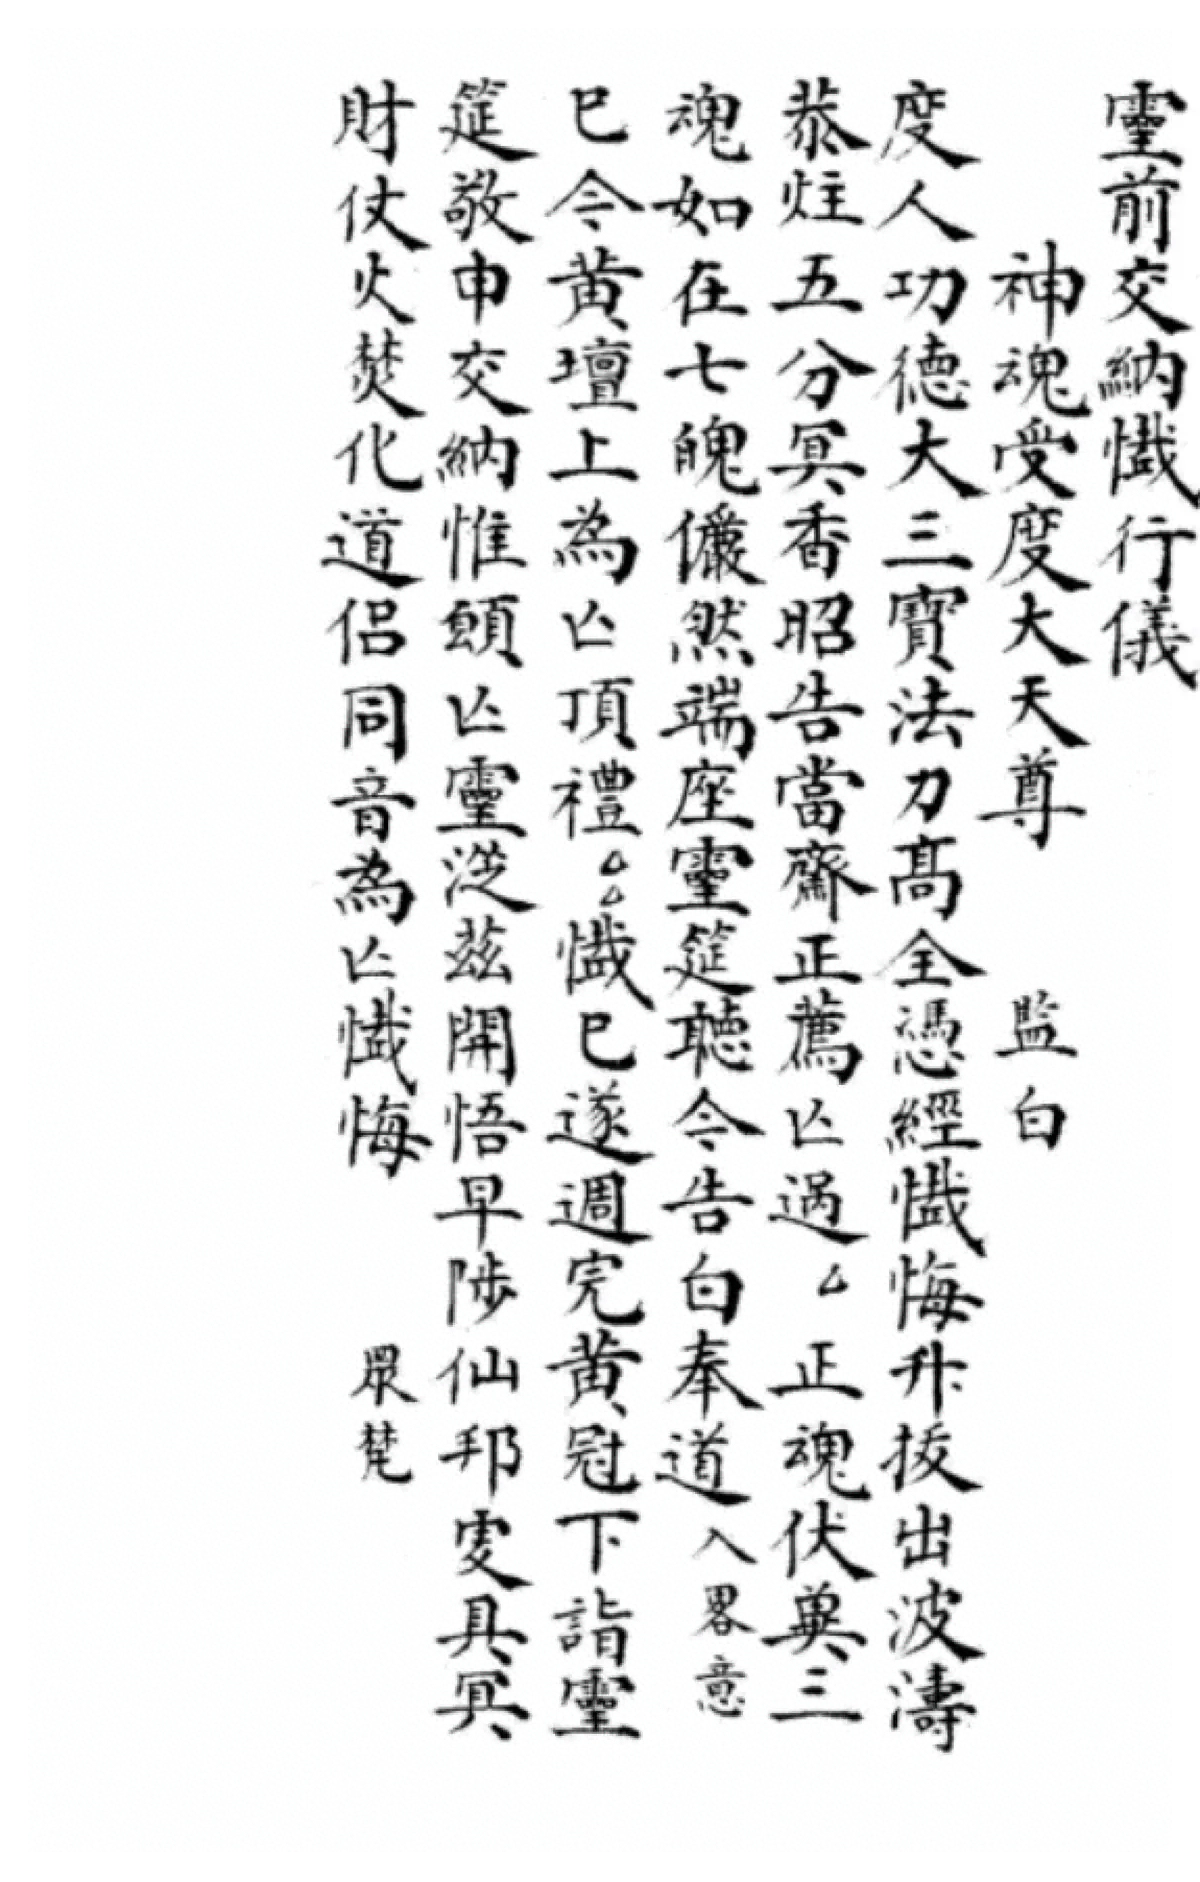 靈前交納懺行儀
神魂受度大天尊 監白
度人功德大三寶法力高全憑經懺悔升拔出波濤
恭炷五分冥香昭告當齋正薦亡過厶正魂伏兾三
魂如在七魄儼然端座靈筵聴令告白奉道入畧意
已令黄壇上為亡頂禮厶厶懺已遂週完黄冠下詣靈
筵敬申交納惟願亡靈從茲開悟早陟仙邦䖏具冥
財仗火焚化道侶同音為亡懺悔 眾梵